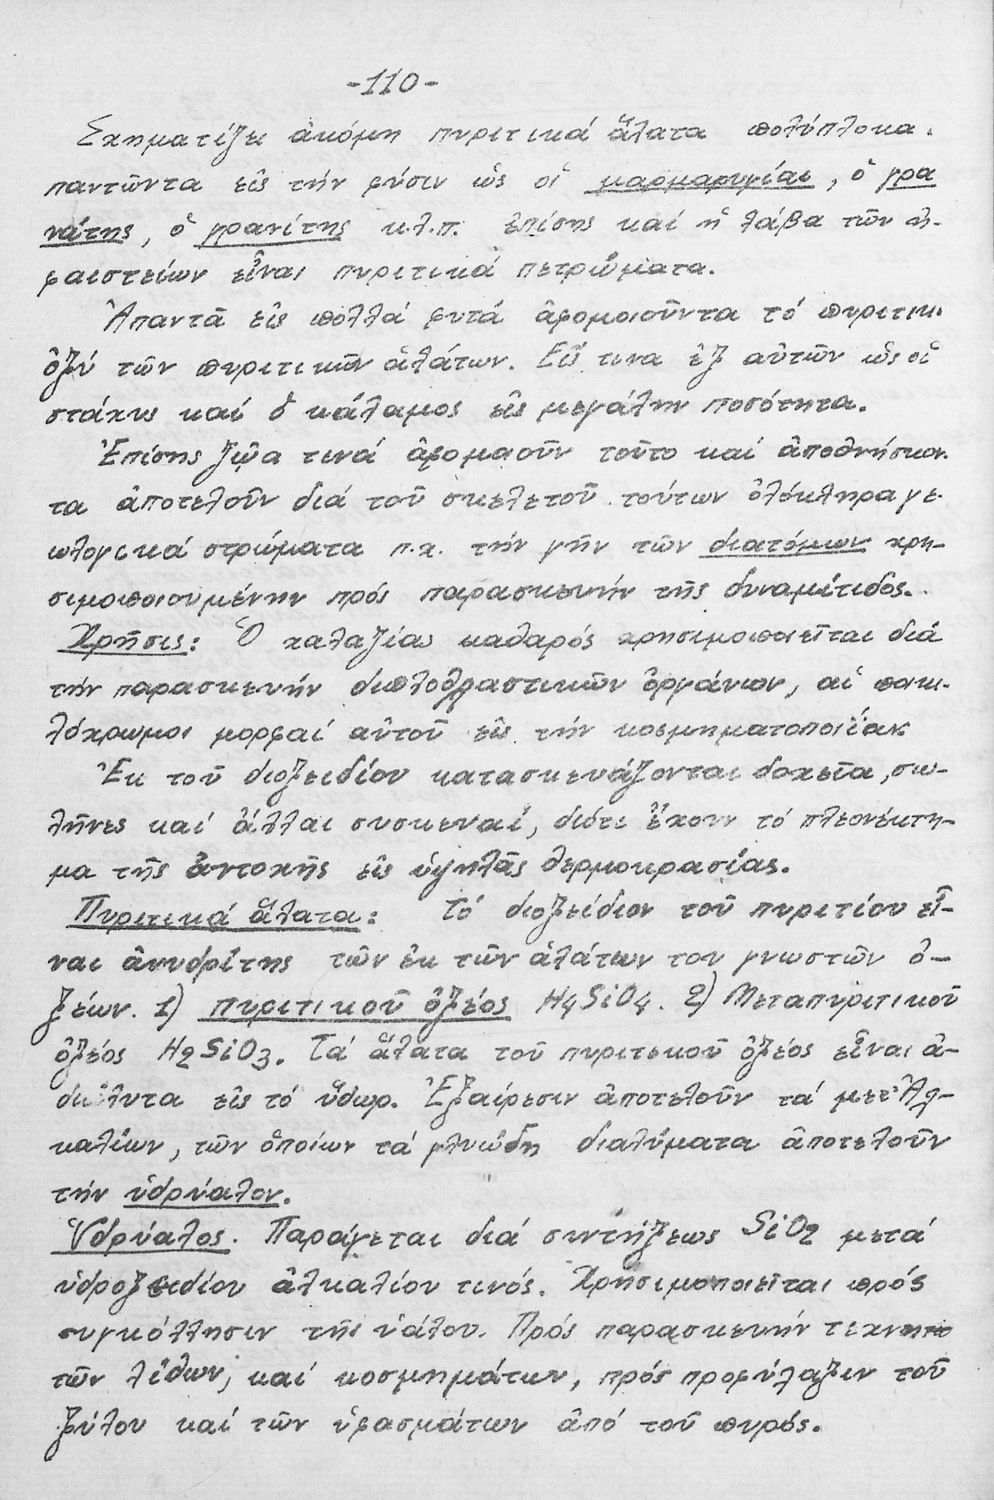 -110-
Σχηματίζει ἀκόμη πυριτικά ἅλατα πολύπλοκα.
παντῶντα εἰς τήν φύσιν ὡς οἱ μαρμαρυγίαι, ὁ γρα
νάτης, ὁ γρανίτης κ.λ.π. ἐπίσης καί ἡ λάβα τῶν ἡ-
φαιστείων εἶναι πυριτικά πετρώματα.
Ἀπαντᾶ εἰς πολλά φυτά ἀφομοιοῦντα τό πυριτικ.
ὀξύ τῶν πυριτικῶν ἁλάτων. Εἰς τινα ἐξ αὐτῶν ὡς οἱ
στάχυς καί ὁ κάλαμος εἰς μεγάλην ποσότητα.
Ἐπίσης ζῷα τινά ἀφομιοῦν τοῦτο καί ἀποθνήσκον.
τα ἀποτελοῦν διά τοῦ σκελετοῦ τούτων ὁλόκληρα γε.
ωλογικά στρώματα π.χ. τήν γῆν τῶν διατόμων χρη-
σιμοποιουμένην πρός παρασκευήν τῆς δυναμίτιδος.
Χρῆσις: Ὁ χαλαζίας καθαρός χρησιμοποιεῖται διά
τήν παρασκευήν διπλοθλαστικῶν ὀργάνων, αἱ ποικι-
λόχρωμοι μορφαί αὐτοῦ εἰς τήν κοσμηματοποιίαν
Ἐκ τοῦ διοξειδίου κατασκευάζονται δοχεῖα, σω-
λῆνες καί ἄλλαι συσκευαί, διότι ἔχουν τό πλεονέκτη-
μα τῆς ἀντοχῆς εἰς ὑψηλᾶς θερμοκρασίας.
Πυριτικά ἅλατα: Τό διοξείδιον τοῦ πυριτίου εἶ-
ναι ἀνυδρίτης τῶν ἐκ τῶν ἁλάτων του γνωστῶν ὀ-
ξέων. 1) πυριτικοῦ ὀξέος H4SiO4. 2) Μεταπυριτικοῦ
ὀξέος H2SiO3. Τά ἅλατα τοῦ πυριτικοῦ ὀξέος εἶναι ἀ-
διάλυτα εἰς τό ὕδωρ. Ἐξαίρεσιν ἀποτελοῦν τά μετ' Ἀλ-
καλίων, τῶν ὁποίων τά φλυώδη διαλύματα ἀποτελοῦν
τήν ὑδρύαλον.
Ὑδρύαλος. Παράγεται διά συντήξεως SiO2 μετά
ὑδροξειδίου ἀλκαλίου τινός. Χρησιμοποιεῖται πρός
συγκόλλησιν τῆς ὑάλου. Πρός παρασκευήν τεχνητ
τῶν λίθων, καί κοσμημάτων, πρός προφύλαξιν τοῦ
ξύλου καί τῶν ὑφασμάτων ἀπό τοῦ πυρός.